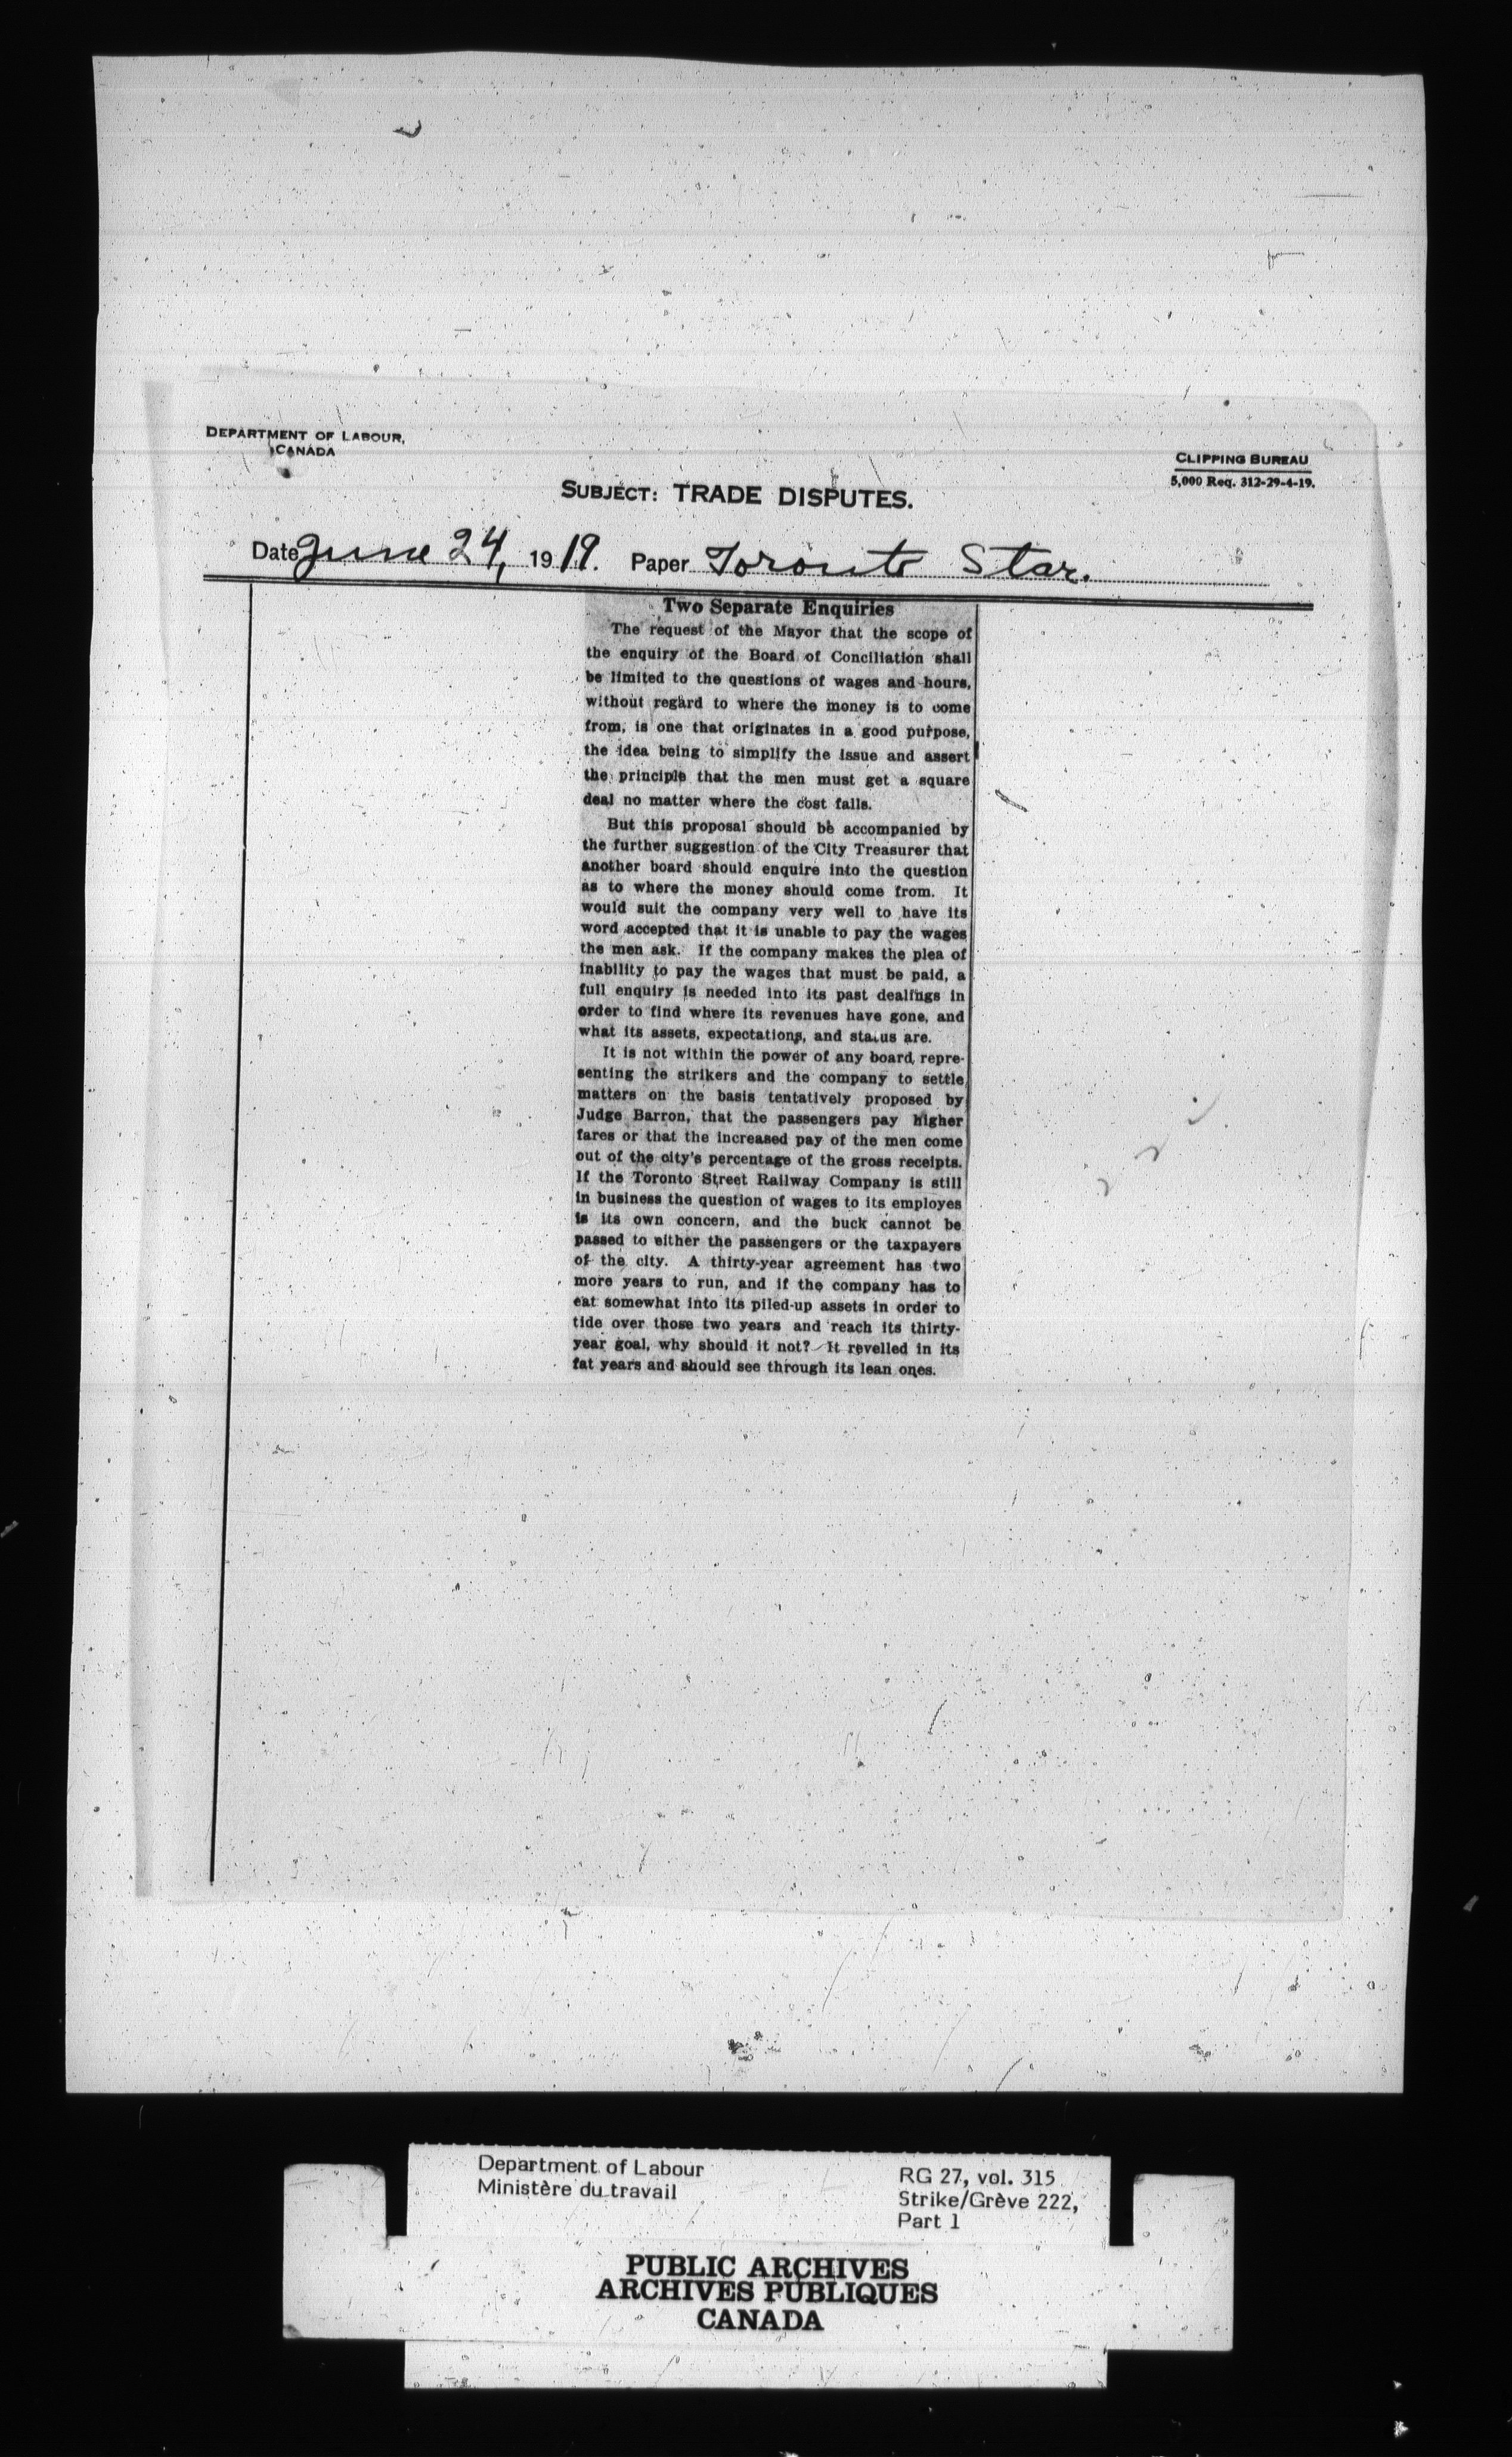 DEPARTMENT OF LABOUR,
CANADA
CLIPPING BUREAU
5,000 Req. 312-29-4-19.
SUBJECT: TRADE DISPUTES.
Date June 24, 1919. Paper Toronto Star.
Two Separate Enquiries
The request of the Mayor that the scope of
the enquiry of the Board of Conciliation shall
be limited to the questions of wages and hours,
without regard to where the money is to come
from, is one that originates in a good purpose,
the idea being to simplify the issue and assert
the principle that the men must get a square
deal no matter where the cost falls.
But this proposal should be accompanied by
the further suggestion of the City Treasurer that
another board should enquire into the question
as to where the money should come from. It
would suit the company very well to have its
word accepted that it is unable to pay the wages
the men ask. If the company makes the plea of
inability to pay the wages that must be paid, a
full enquiry is needed into its past dealings in
order to find where its revenues have gone, and
what its assets, expectations, and status are.
It is not within the power of any board repre-
senting the strikers and the company to settle
matters on the basis tentatively proposed by
Judge Barron, that the passengers pay higher
fares or that the increased pay of the men come
out of the city's percentage of the gross receipts.
If the Toronto Street Railway Company is still
in business the question of wages to its employes
is its own concern, and the buck cannot be
passed to either the passengers or the taxpayers
of the city. A thirty-year agreement has two
more years to run, and if the company has to
eat somewhat into its piled-up assets in order to
tide over those two years and reach its thirty-
year goal, why should it not? It revelled in its
fat years and should see through its lean ones.
Department of Labour
Ministère du travail
RG 27, vol. 315
Strike/Grève 222,
Part 1
PUBLIC ARCHIVES
ARCHIVES PUBLIQUES
CANADA